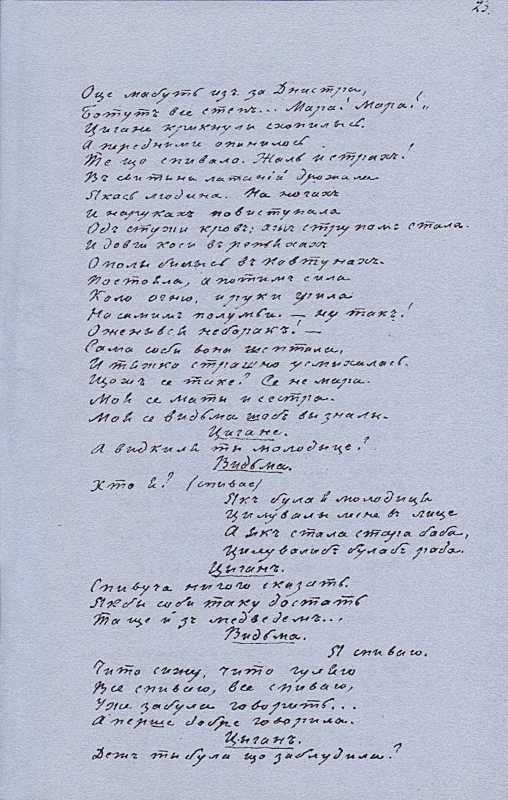 23.
Оце мабуть изъ за Днистра,
Бо тутъ все степъ... Мара! Мара!..
Цигане крикнули схопились.
А передними опинилось
Те що спивало. Жаль и страхъ!
Въ свитыни латаній дрожала
Якась людина. На ногахъ
И на рукахъ повиступала
Одъ стужи кровъ; ажъ струпомъ стала.
И довги коси въ репяхахъ
О полы бились въ ковтунахъ.
Постояла, а потимъ сила
Коло огню, и руки гріла
На самимъ полумъи. — Ну такъ!
Оженывся неборакъ! —
Сама соби вона шептала,
И тяжко страшно усмихалась.
Що жъ се таке? Се не мара.
Моя се мати и сестра.
Моя се видьма щобъ вы знали.
Цигане.
А видкиля ты молодыце?
Видьма.
Хто я? (спивае)
Якъ була я молодиця
Цилувалы мене въ лице
А якъ стала стара баба,
Цилувалабъ булабъ рада.
Цыганъ.
Спивуча нигого сказать.
Якбы соби таку достать
Та ще й зъ медведемъ...
Видьма.
Я спиваю.
Чи то сижу, чи то гуляю
Все спиваю, все спиваю,
Уже забула говорить...
А перше добре говорила.
Цыганъ.
Де жъ ты була що заблудила?